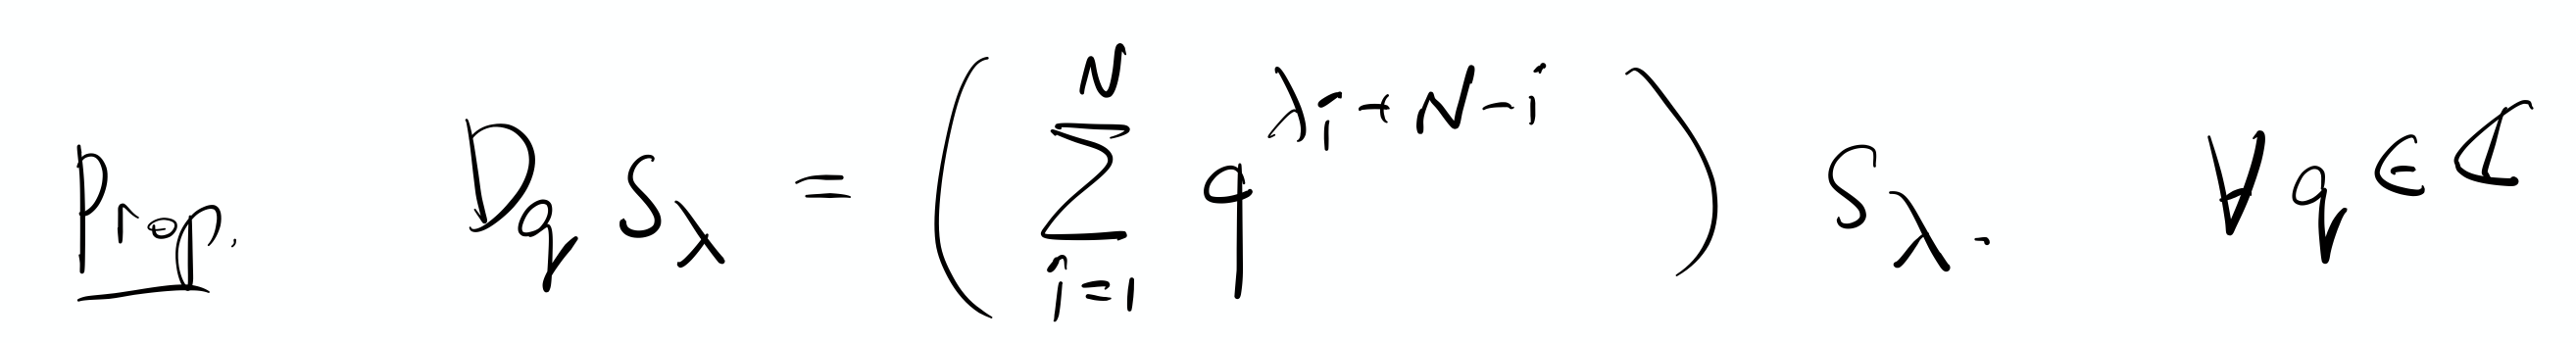 Prop. $D_q S_\lambda = \left( \sum_{i=1}^{N} q^{\lambda_i + N - i} \right) S_\lambda. \quad \forall q \in \mathbb{C}$